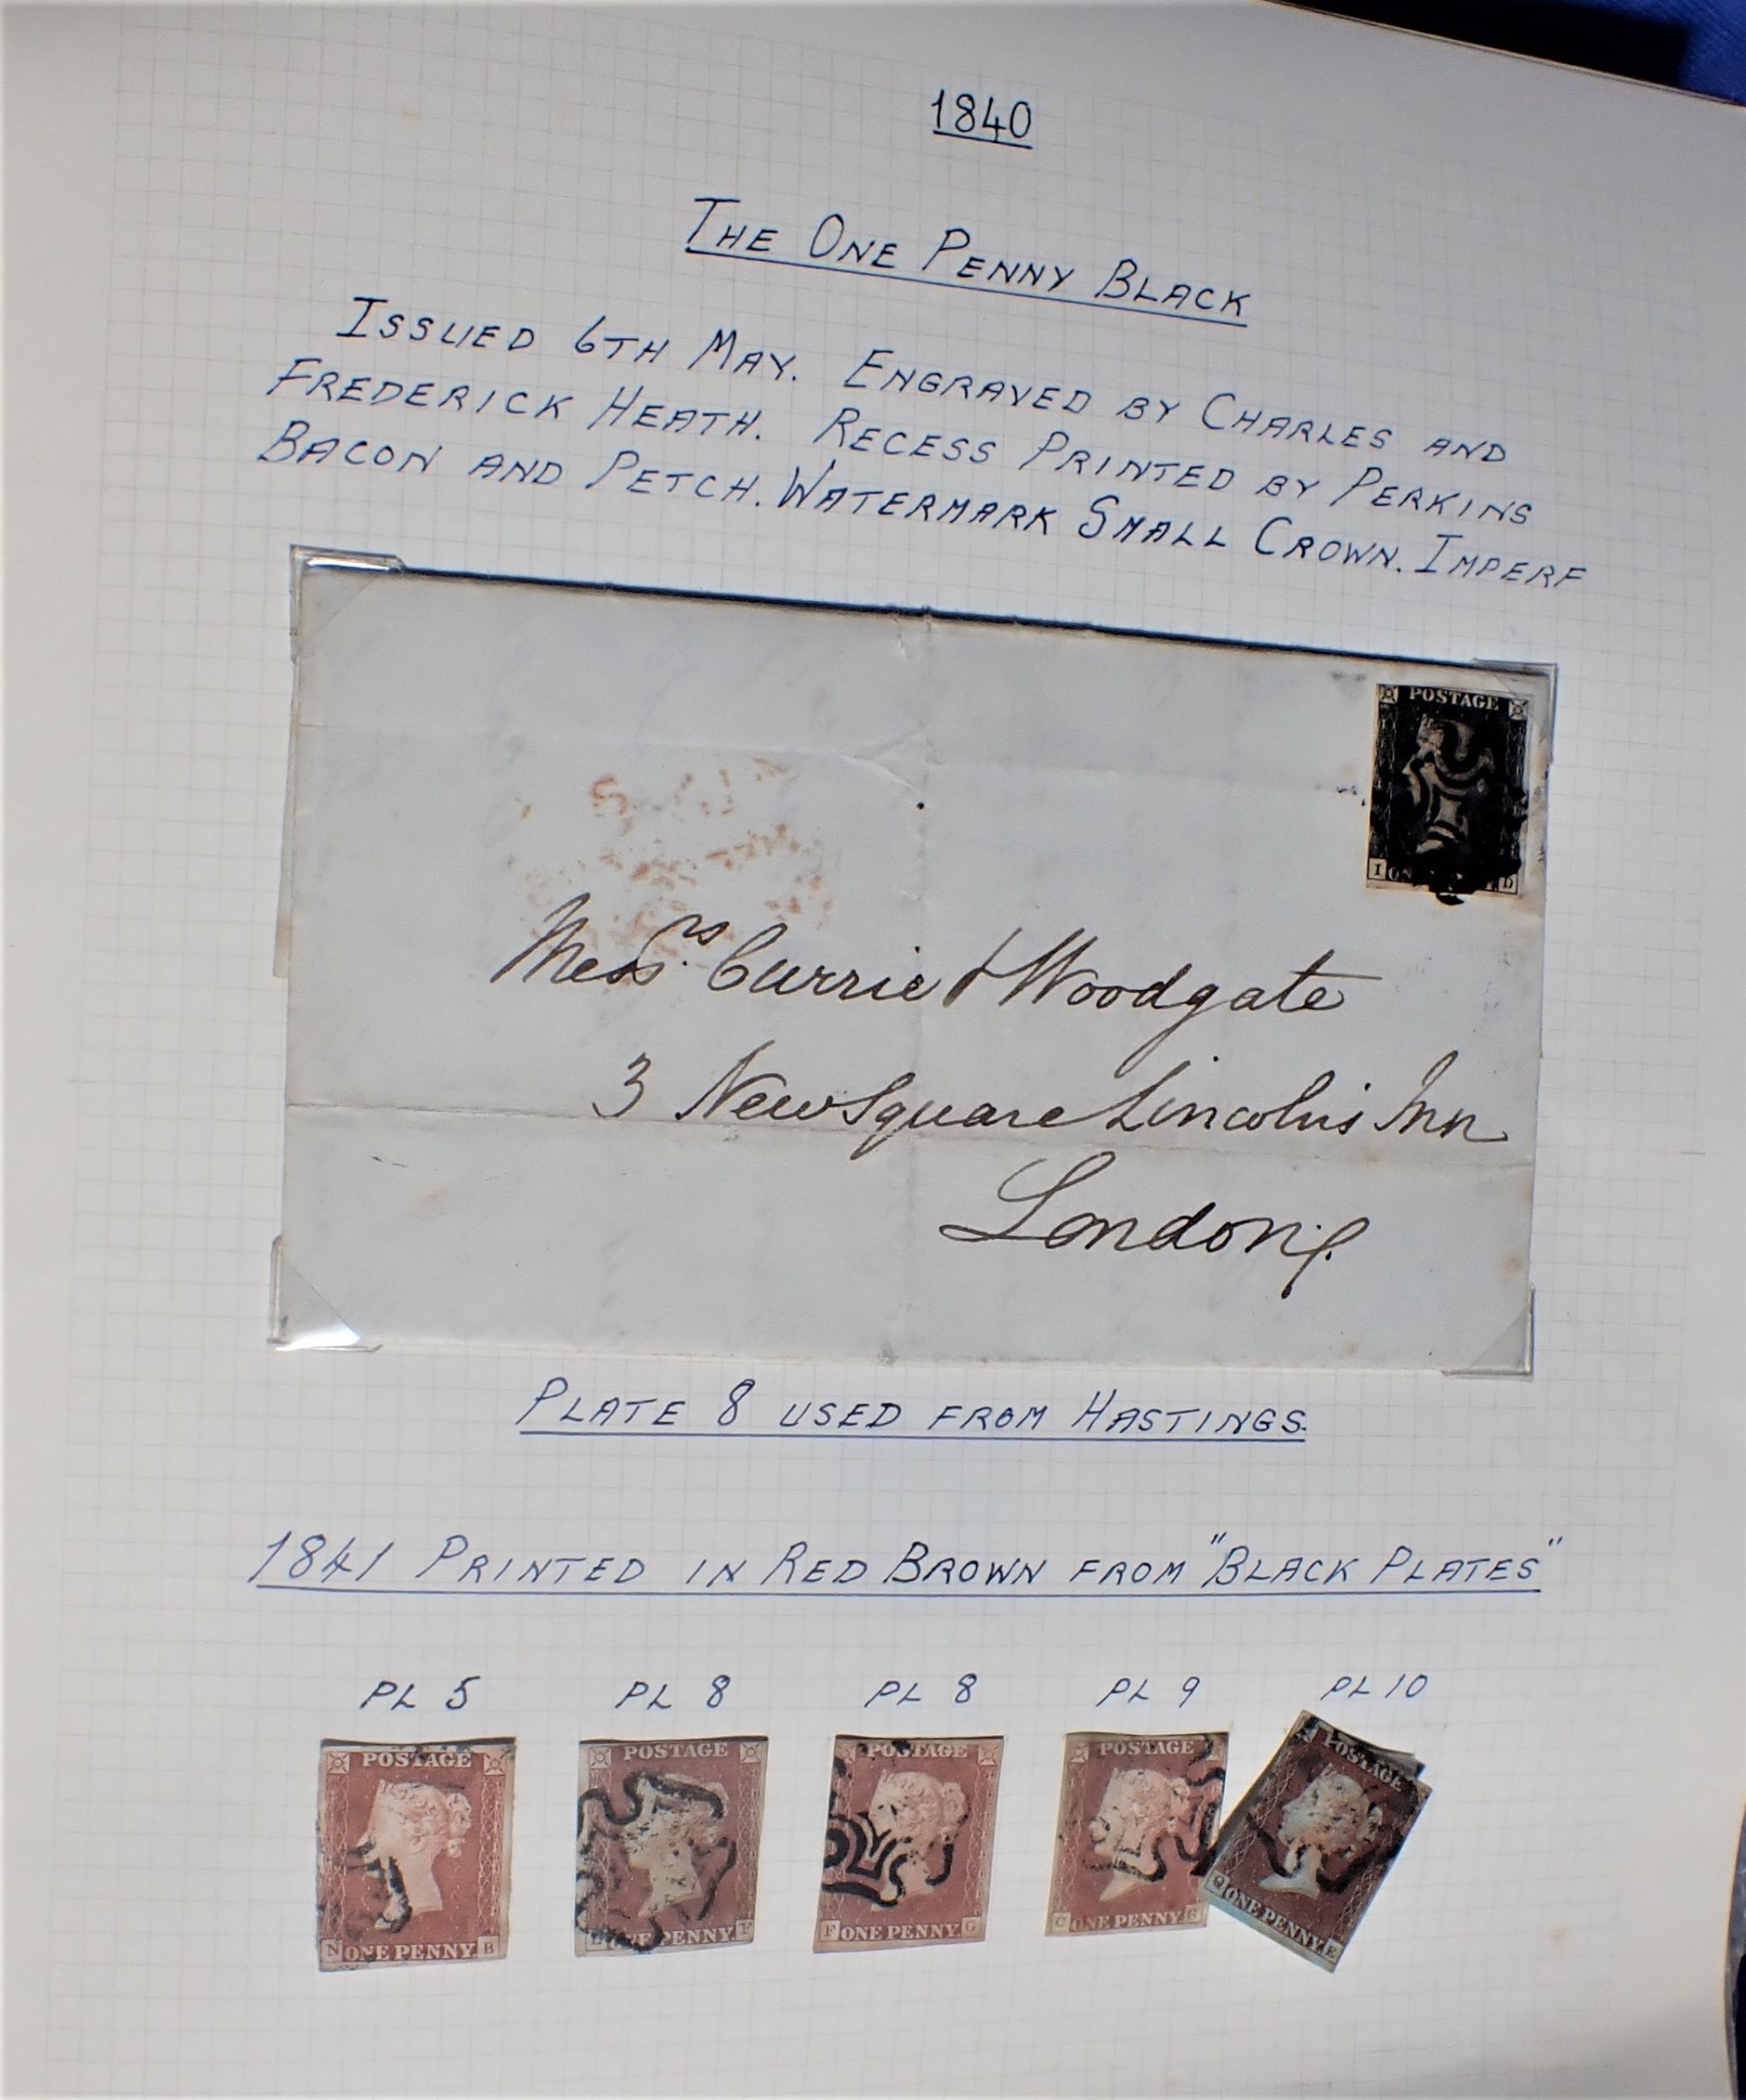 1840
THE ONE PENNY BLACK
ISSUED 6TH MAY. ENGRAVED BY CHARLES AND
FREDERICK HEATH. RECESS PRINTED BY PERKINS
BACON AND PETCH. WATERMARK SMALL CROWN. IMPERF
POSTAGE
I D
Messrs. Currie & Woodgate
3 New Square Lincolns Inn
London
PLATE 8 USED FROM HASTINGS.
1841 PRINTED IN RED BROWN FROM "BLACK PLATES"
PL 5 PL 8 PL 8 PL 9 PL 10
POSTAGE POSTAGE POSTAGE POSTAGE POSTAGE
N ONE PENNY B
PENNY F
F ONE PENNY G
C ONE PENNY G
Q ONE PENNY E